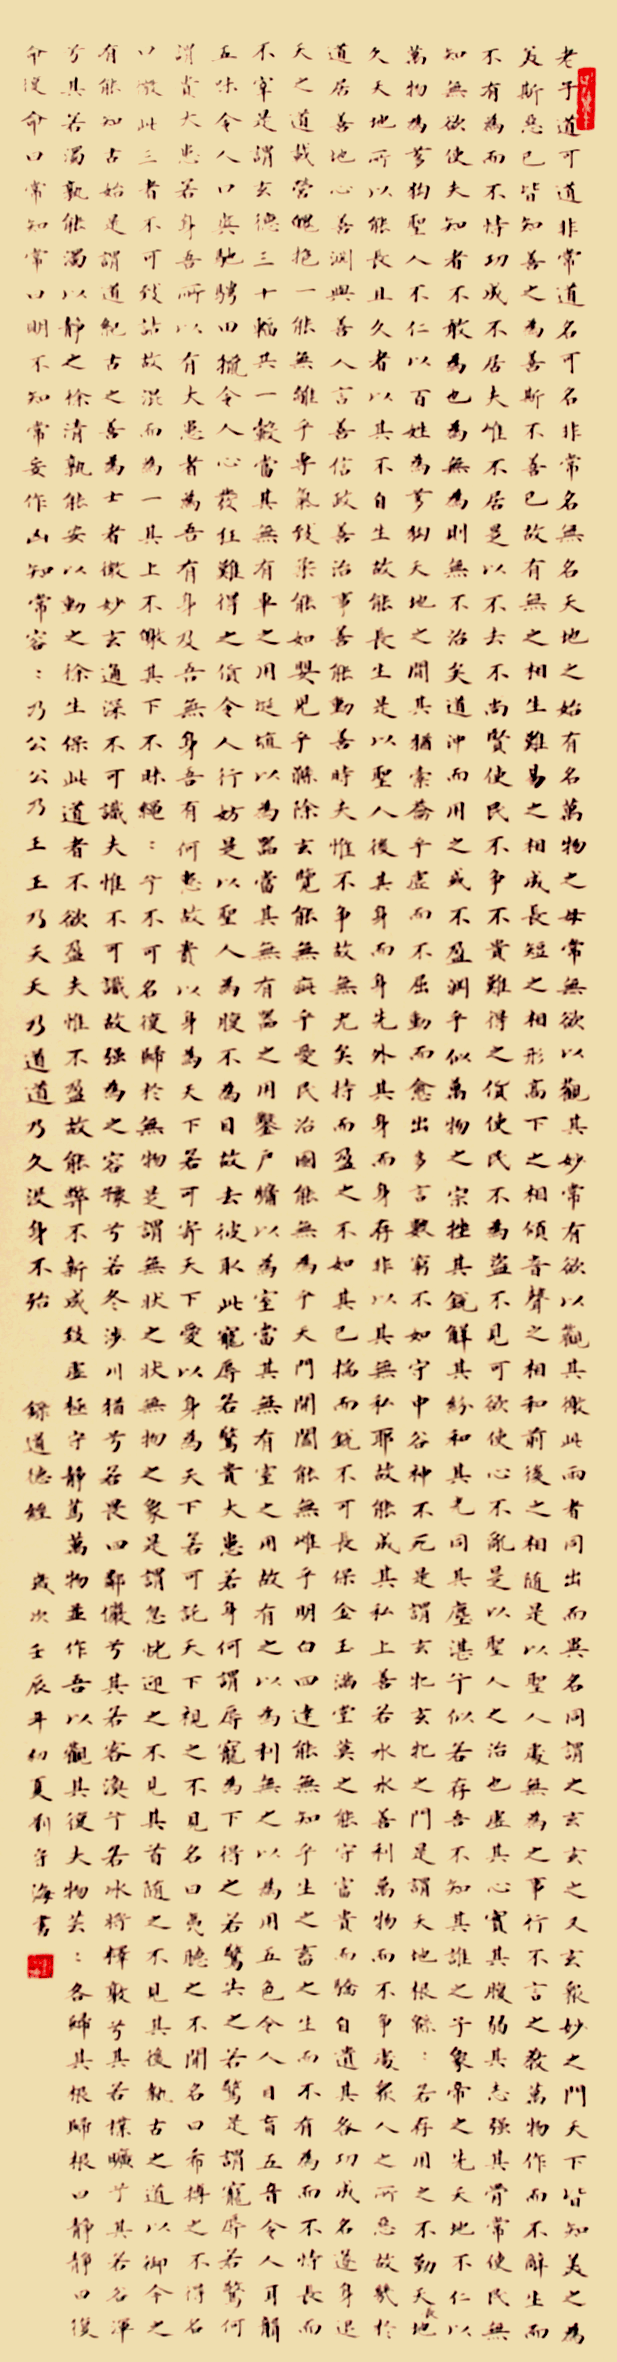 老子道可道非常道名可名非常名無名天地之始有名萬物之母常無欲以觀其妙常有欲以觀其徼此而者同出而異名同謂之玄玄之又玄眾妙之門天下皆知美之為
美斯惡已皆知善之為善斯不善已故有無之相生難易之相成長短之相形高下之相傾音聲之相和前後之相隨是以聖人處無為之事行不言之教萬物作而不辭生而
不有為而不恃功成不居夫惟不居是以不去不尚賢使民不爭不貴難得之貨使民不為盜不見可欲使心不亂是以聖人之治也虛其心實其腹弱其志強其骨常使民無
知無欲使夫知者不敢為也為無為則無不治矣道沖而用之或不盈淵乎似萬物之宗挫其銳解其紛和其光同其塵湛兮似若存吾不知其誰之子象帝之先天地不仁以
萬物為芻狗聖人不仁以百姓為芻狗天地之間其猶橐龠乎虛而不屈動而愈出多言數窮不如守中谷神不死是謂玄牝玄牝之門是謂天地根綿：若存用之不勤天長地
久天地所以能長且久者以其不自生故能長生是以聖人後其身而身先外其身而身存非以其無私耶故能成其私上善若水水善利萬物而不爭處眾人之所惡故幾於
道居善地心善淵與善人言善信政善治事善能動善時夫惟不爭故無尤矣持而盈之不如其已揣而銳不可長保金玉滿堂莫之能守富貴而驕自遺其咎功成名遂身退
天之道哉營魄抱一能無離乎專氣致柔能如嬰兒乎滌除玄覽能無疵乎愛民治國能無為乎天門開闔能無雌乎明白四達能無知乎生之畜之生而不有為而不恃長而
不宰是謂玄德三十輻共一轂當其無有車之用埏埴以為器當其無有器之用鑿戶牖以為室當其無有室之用故有之以為利無之以為用五色令人目盲五音令人耳聾
五味令人口爽馳騁田獵令人心發狂難得之貨令人行妨是以聖人為腹不為目故去彼取此寵辱若驚貴大患若身何謂辱寵為下得之若驚失之若驚是謂寵辱若驚何
謂貴大患若身吾所以有大患者為吾有身及吾無身吾有何患故貴以身為天下若可寄天下愛以身為天下若可託天下視之不見名曰夷聽之不聞名曰希搏之不得名
以微此三者不可致詰故混而為一其上不皦其下不昧繩：兮不可名復歸於無物是謂無狀之狀無物之象是謂忽恍迎之不見其首隨之不見其後執古之道以御今之
有能知古始是謂道紀古之善為士者微妙玄通深不可識夫惟不可識故強為之容豫兮若冬涉川猶兮若畏四鄰儼兮其若客渙兮若冰將釋敦兮其若樸曠兮其若谷渾
兮其若濁孰能濁以靜之徐清孰能安以動之徐生保此道者不欲盈夫惟不盈故能弊不新成致虛極守靜篤萬物並作吾以觀其復夫物芸：各歸其根歸根曰靜靜曰復
命復命曰常知常曰明不知常妄作凶知常容：乃公公乃王王乃天天乃道道乃久沒身不殆 錄道德經 歲次壬辰年初夏劉守海書